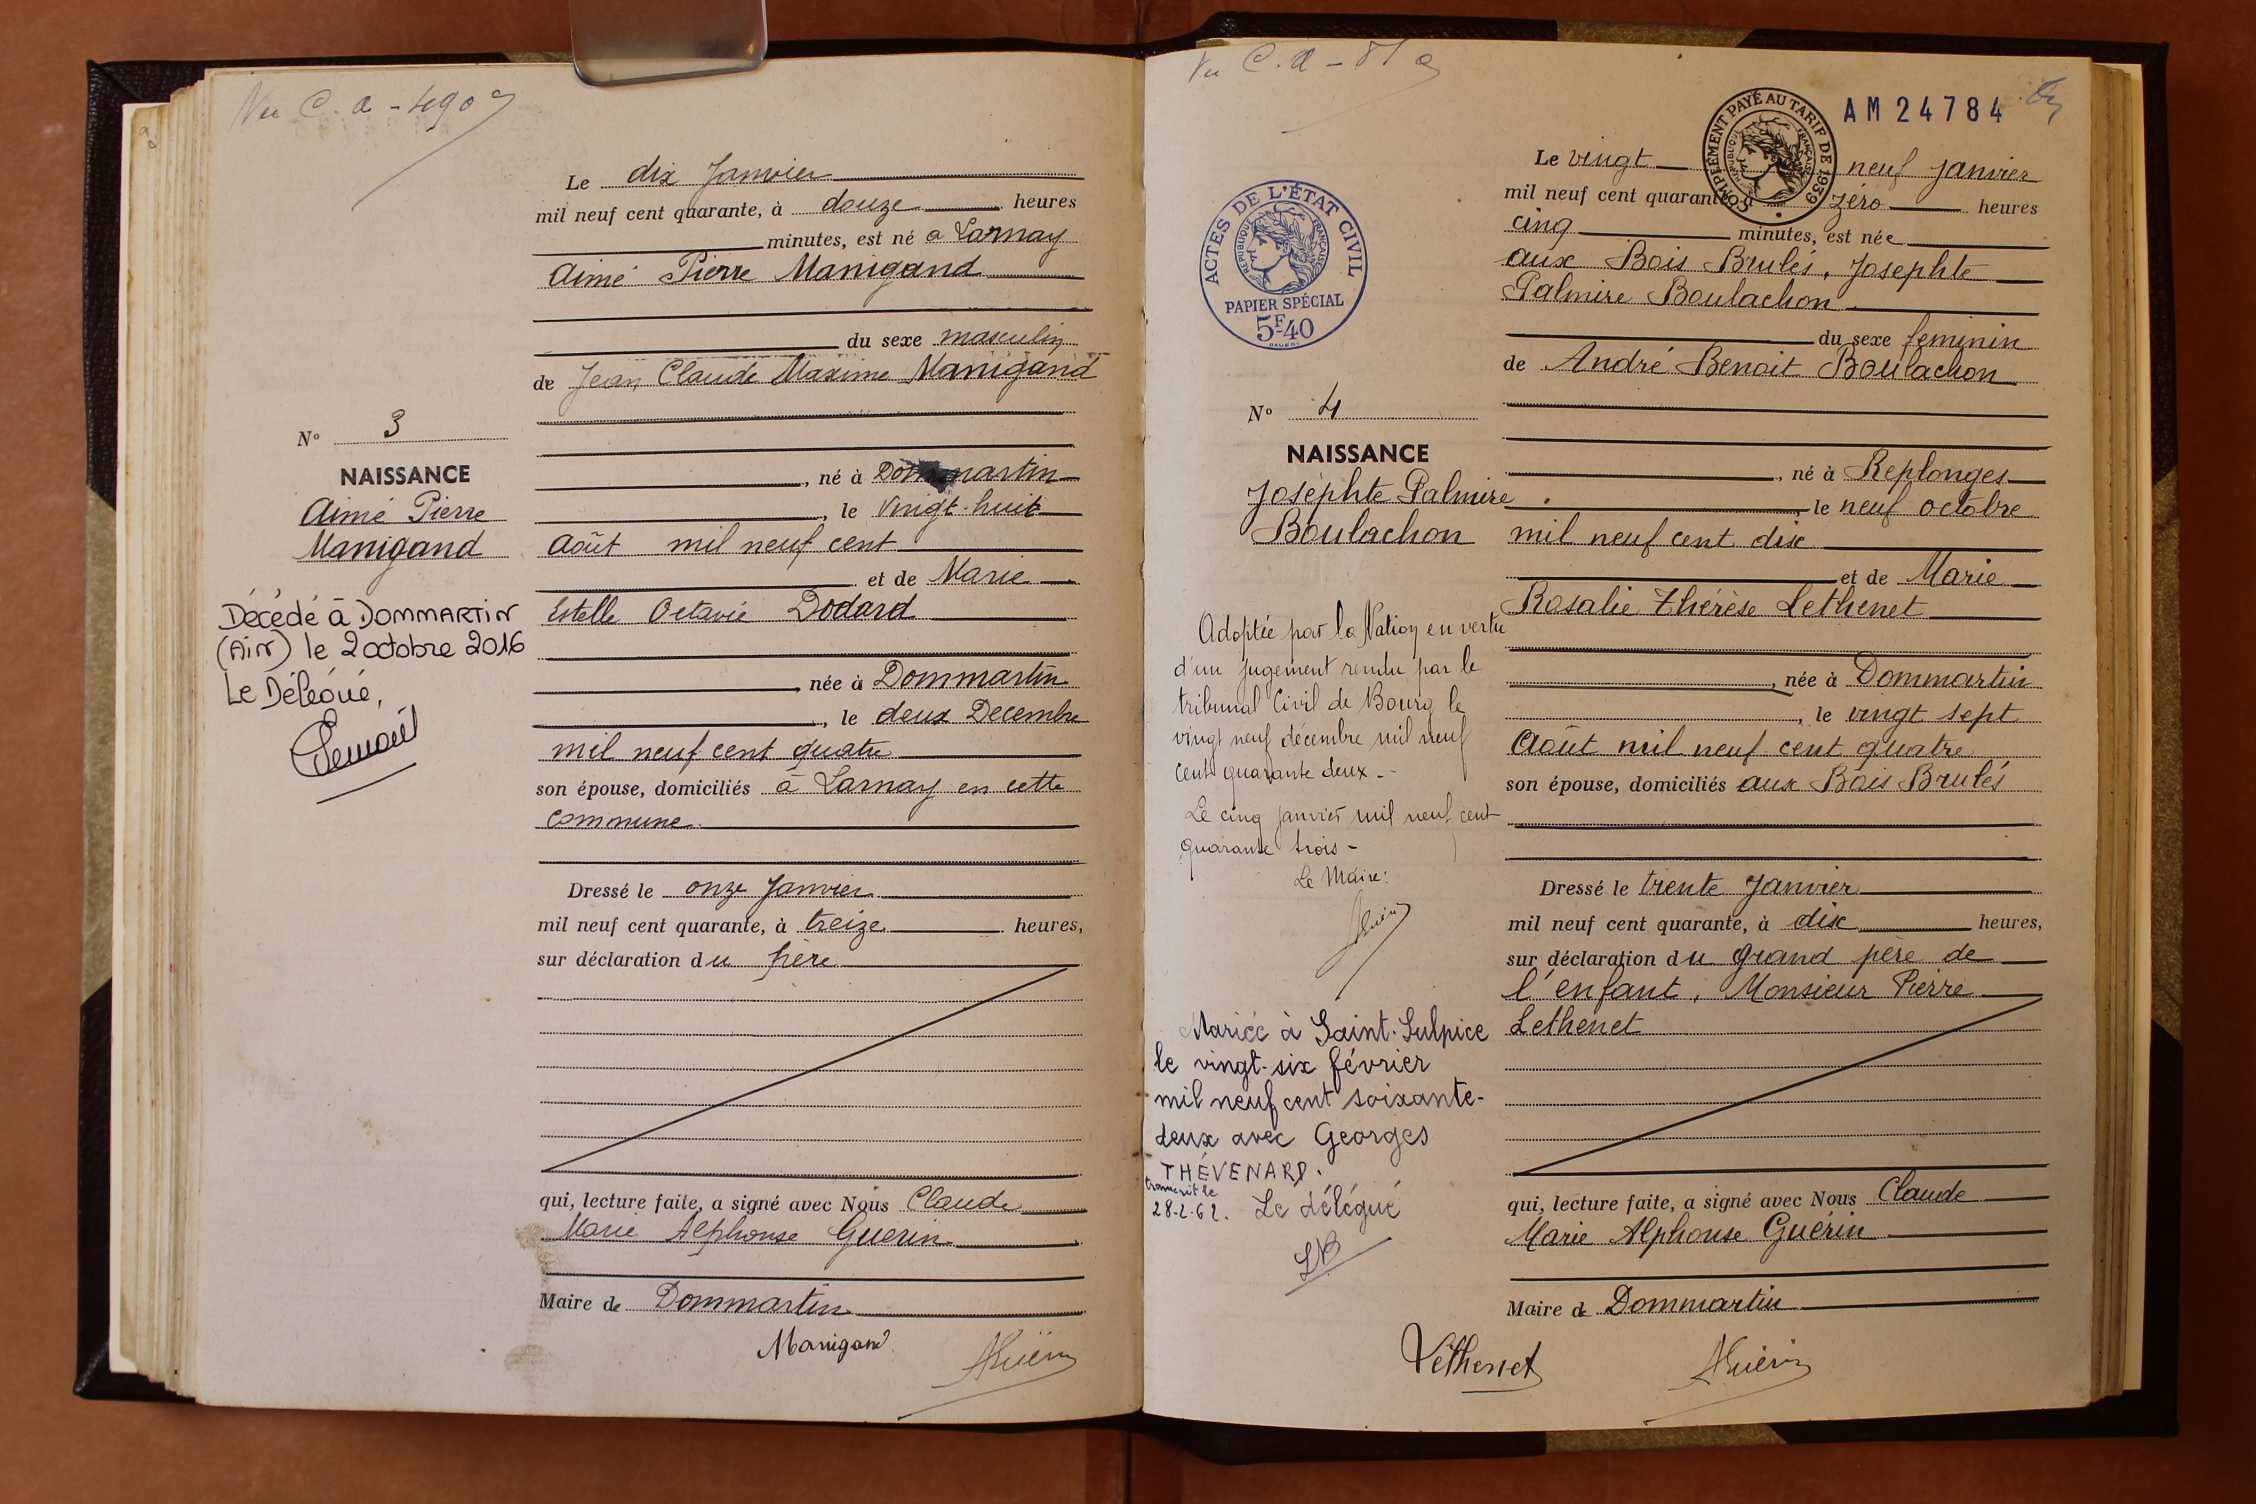 Vu C. a - 490
Le dix Janvier
mil neuf cent quarante, à douze heures
minutes, est né a Larnay
Aimé Pierre Manigand
du sexe masculin
de Jean Claude Maxime Manigand
N° 3
NAISSANCE
Aimé Pierre
Manigand
Décédé à DOMMARTIN
(Ain) le 2 octobre 2016
Le Délégué,
, né à Dommartin
, le Vingt-huit
Août mil neuf cent
et de Marie
Estelle Octavie Dodard
, née à Dommartin
, le deux Decembre
mil neuf cent quatre
son épouse, domiciliés à Larnay en cette
commune
Dressé le onze Janvier
mil neuf cent quarante, à treize heures,
sur déclaration du père
qui, lecture faite, a signé avec Nous Claude
Marie Alphonse Guerin
Maire de Dommartin
Manigand
AGuérin
Vu C. a -
COMPLÉMENT PAYÉ AU TARIF DE 1939
RÉPUBLIQUE FRANÇAISE
AM 24784
ACTES DE L'ÉTAT CIVIL
RÉPUBLIQUE FRANÇAISE
PAPIER SPÉCIAL
5F40
Le vingt neuf janvier
mil neuf cent quarante, à zéro heures
cinq minutes, est née
aux Bois Brulés, Josephte
Palmire Boulachon
du sexe féminin
de André Benoit Boulachon
N° 4
NAISSANCE
Joséphte Palmire
Boulachon
Adoptée par la Nation en vertu
d'un jugement rendu par le
tribunal Civil de Bourg le
vingt neuf décembre mil neuf
cent quarante deux.-
Le cinq janvier mil neuf cent
quarante trois -
Le Maire:
AGuérin
Mariée à Saint-Sulpice
le vingt-six février
mil neuf cent soixante-
deux avec Georges
THÉVENARD.
transcrit le
28-2-62. Le délégué
, né à Replonges
, le neuf octobre
mil neuf cent dix
et de Marie
Rosalie Thérèse Lethenet
, née à Dommartin
, le vingt sept
Août mil neuf cent quatre
son épouse, domiciliés aux Bois Brulés
Dressé le trente Janvier
mil neuf cent quarante, à dix heures,
sur déclaration du grand père de
l'enfant, Monsieur Pierre
Lethenet
qui, lecture faite, a signé avec Nous Claude
Marie Alphonse Guérin
Maire de Dommartin
Léthenet
AGuérin